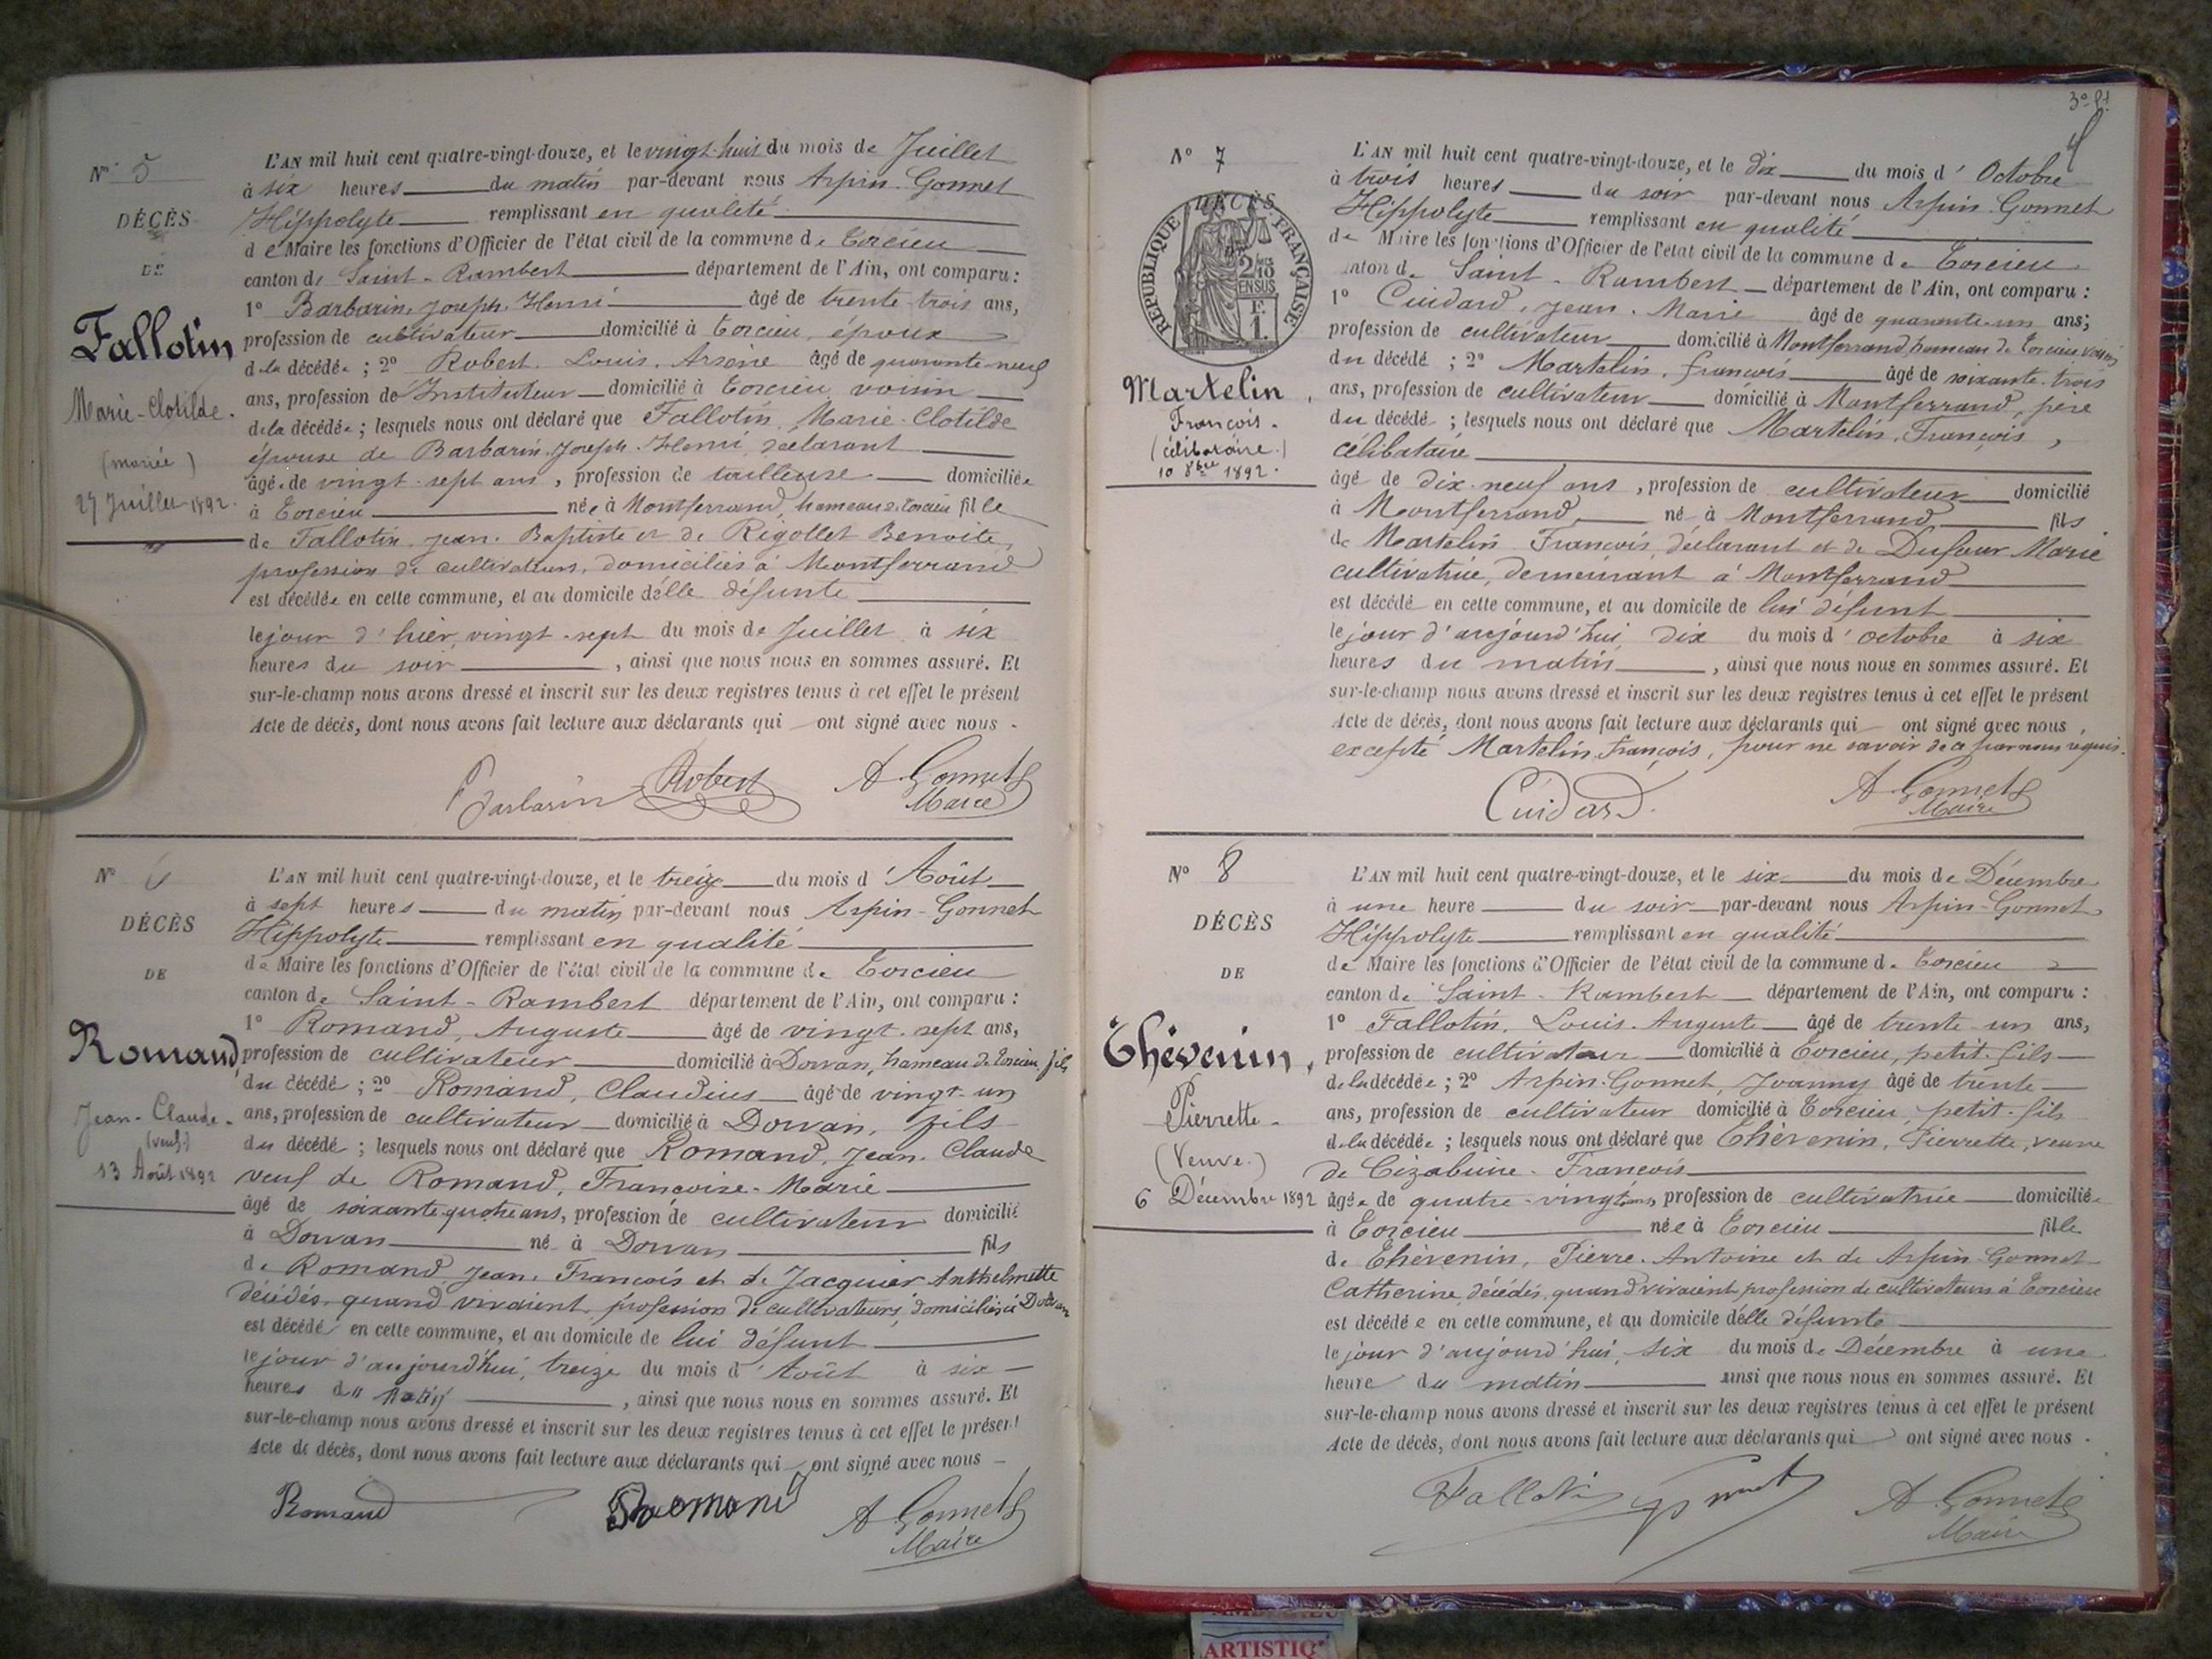 N° 5
DÉCÈS
DE
Fallotin
Marie-Clotilde.
(mariée)
27 Juillet 1892.
L'AN mil huit cent quatre-vingt-douze, et le vingt-huit du mois de Juillet
à six heures du matin par-devant nous Arpin-Gonnet
Hippolyte remplissant en qualité
de Maire les fonctions d'Officier de l'état civil de la commune de Torcieu
canton de Saint-Rambert département de l'Ain, ont comparu :
1° Barbarin, Joseph, Henri âgé de trente-trois ans,
profession de cultivateur domicilié à Torcieu, époux
de la décédée ; 2° Robert, Louis, Arsène âgé de quarante-neuf
ans, profession de Instituteur domicilié à Torcieu, voisin
de la décédée ; lesquels nous ont déclaré que Fallotin, Marie-Clotilde
épouse de Barbarin, Joseph-Henri, déclarant
âgée de vingt-sept ans, profession de tailleuse domiciliée
à Torcieu née à Montferrand, hameau de Torcieu fille
de Fallotin, Jean-Baptiste et de Rigollet Benoite,
profession de cultivateurs, domiciliés à Montferrand
est décédée en cette commune, et au domicile d'elle défunte
le jour d'hier, vingt-sept du mois de Juillet à six
heures du soir, ainsi que nous nous en sommes assuré. Et
sur-le-champ nous avons dressé et inscrit sur les deux registres tenus à cet effet le présent
Acte de décès, dont nous avons fait lecture aux déclarants qui ont signé avec nous.
Barbarin Robert A Gonnet
Maire
N° 6
DÉCÈS
DE
Romand,
Jean-Claude.
(veuf)
13 Août 1892
L'AN mil huit cent quatre-vingt-douze, et le treize du mois d'Août
à sept heures du matin par-devant nous Arpin-Gonnet
Hippolyte remplissant en qualité
de Maire les fonctions d'Officier de l'état civil de la commune de Torcieu
canton de Saint-Rambert département de l'Ain, ont comparu :
1° Romand, Auguste âgé de vingt-sept ans,
profession de cultivateur domicilié à Dorvan, hameau de Torcieu, fils
du décédé ; 2° Romand, Claudius âgé de vingt-un
ans, profession de cultivateur domicilié à Dorvan, fils
du décédé ; lesquels nous ont déclaré que Romand, Jean-Claude
veuf de Romand, Françoise-Marie
âgé de soixante-quatre ans, profession de cultivateur domicilié
à Dorvan né à Dorvan fils
de Romand, Jean-François et de Jacquier Anthelmette
décédés, quand vivaient, profession de cultivateurs, domiciliés à Dorvan
est décédé en cette commune, et au domicile de lui défunt
le jour d'aujourd'hui, treize du mois d'Août à six
heures du matin, ainsi que nous nous en sommes assuré. Et
sur-le-champ nous avons dressé et inscrit sur les deux registres tenus à cet effet le présent
Acte de décès, dont nous avons fait lecture aux déclarants qui ont signé avec nous
Romand Romand A Gonnet
Maire
N° 7
DÉCÈS.
RÉPUBLIQUE FRANÇAISE
2/10 EN SUS
F. 1.
Martelin,
François.
(célibataire.)
10 8bre 1892.
L'AN mil huit cent quatre-vingt-douze, et le dix du mois d'Octobre
à trois heures du soir par-devant nous Arpin-Gonnet
Hippolyte remplissant en qualité
de Maire les fonctions d'Officier de l'état civil de la commune de Torcieu
canton de Saint-Rambert département de l'Ain, ont comparu :
1° Cuidard, Jean-Marie âgé de quarante-un ans;
profession de cultivateur domicilié à Montferrand, hameau de Torcieu, voisin
du décédé ; 2° Martelin, François âgé de soixante-trois
ans, profession de cultivateur domicilié à Montferrand, père
du décédé ; lesquels nous ont déclaré que Martelin, François,
célibataire
âgé de dix-neuf ans, profession de cultivateur domicilié
à Montferrand, né à Montferrand fils
de Martelin François, déclarant et de Dufour Marie
cultivatrice, demeurant à Montferrand
est décédé en cette commune, et au domicile de lui défunt
le jour d'aujourd'hui dix du mois d'octobre à six
heures du matin, ainsi que nous nous en sommes assuré. Et
sur-le-champ nous avons dressé et inscrit sur les deux registres tenus à cet effet le présent
Acte de décès, dont nous avons fait lecture aux déclarants qui ont signé avec nous,
excepté Martelin François, pour ne savoir de ce par nous requis.
Cuidard. A Gonnet
Maire
N° 8
DÉCÈS
DE
Thévenin,
Pierrette.
(Veuve.)
6 Décembre 1892
L'AN mil huit cent quatre-vingt-douze, et le six du mois de Décembre
à une heure du soir par-devant nous Arpin-Gonnet
Hippolyte remplissant en qualité
de Maire les fonctions d'Officier de l'état civil de la commune de Torcieu
canton de Saint-Rambert département de l'Ain, ont comparu :
1° Fallotin, Louis-Auguste âgé de trente-un ans,
profession de cultivateur domicilié à Torcieu, petit-fils
de la décédée ; 2° Arpin-Gonnet, Joanny âgé de trente
ans, profession de cultivateur domicilié à Torcieu, petit-fils
de la décédée ; lesquels nous ont déclaré que Thévenin, Pierrette, veuve
de François
âgée de quatre-vingt ans, profession de cultivatrice domiciliée
à Torcieu née à Torcieu fille
de Thévenin, Pierre-Antoine et de Arpin-Gonnet
Catherine, décédés, quand vivaient profession de cultivateurs à Torcieu
est décédée en cette commune, et au domicile d'elle défunte
le jour d'aujourd'hui, six du mois de Décembre à une
heure du matin ainsi que nous nous en sommes assuré. Et
sur-le-champ nous avons dressé et inscrit sur les deux registres tenus à cet effet le présent
Acte de décès, dont nous avons fait lecture aux déclarants qui ont signé avec nous.
Fallotin Gonnet A Gonnet
Maire
ARTISTIQ